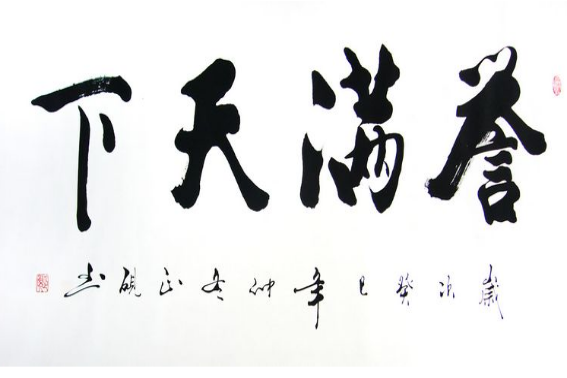 誉满天下
岁次癸巳年仲冬正砚书